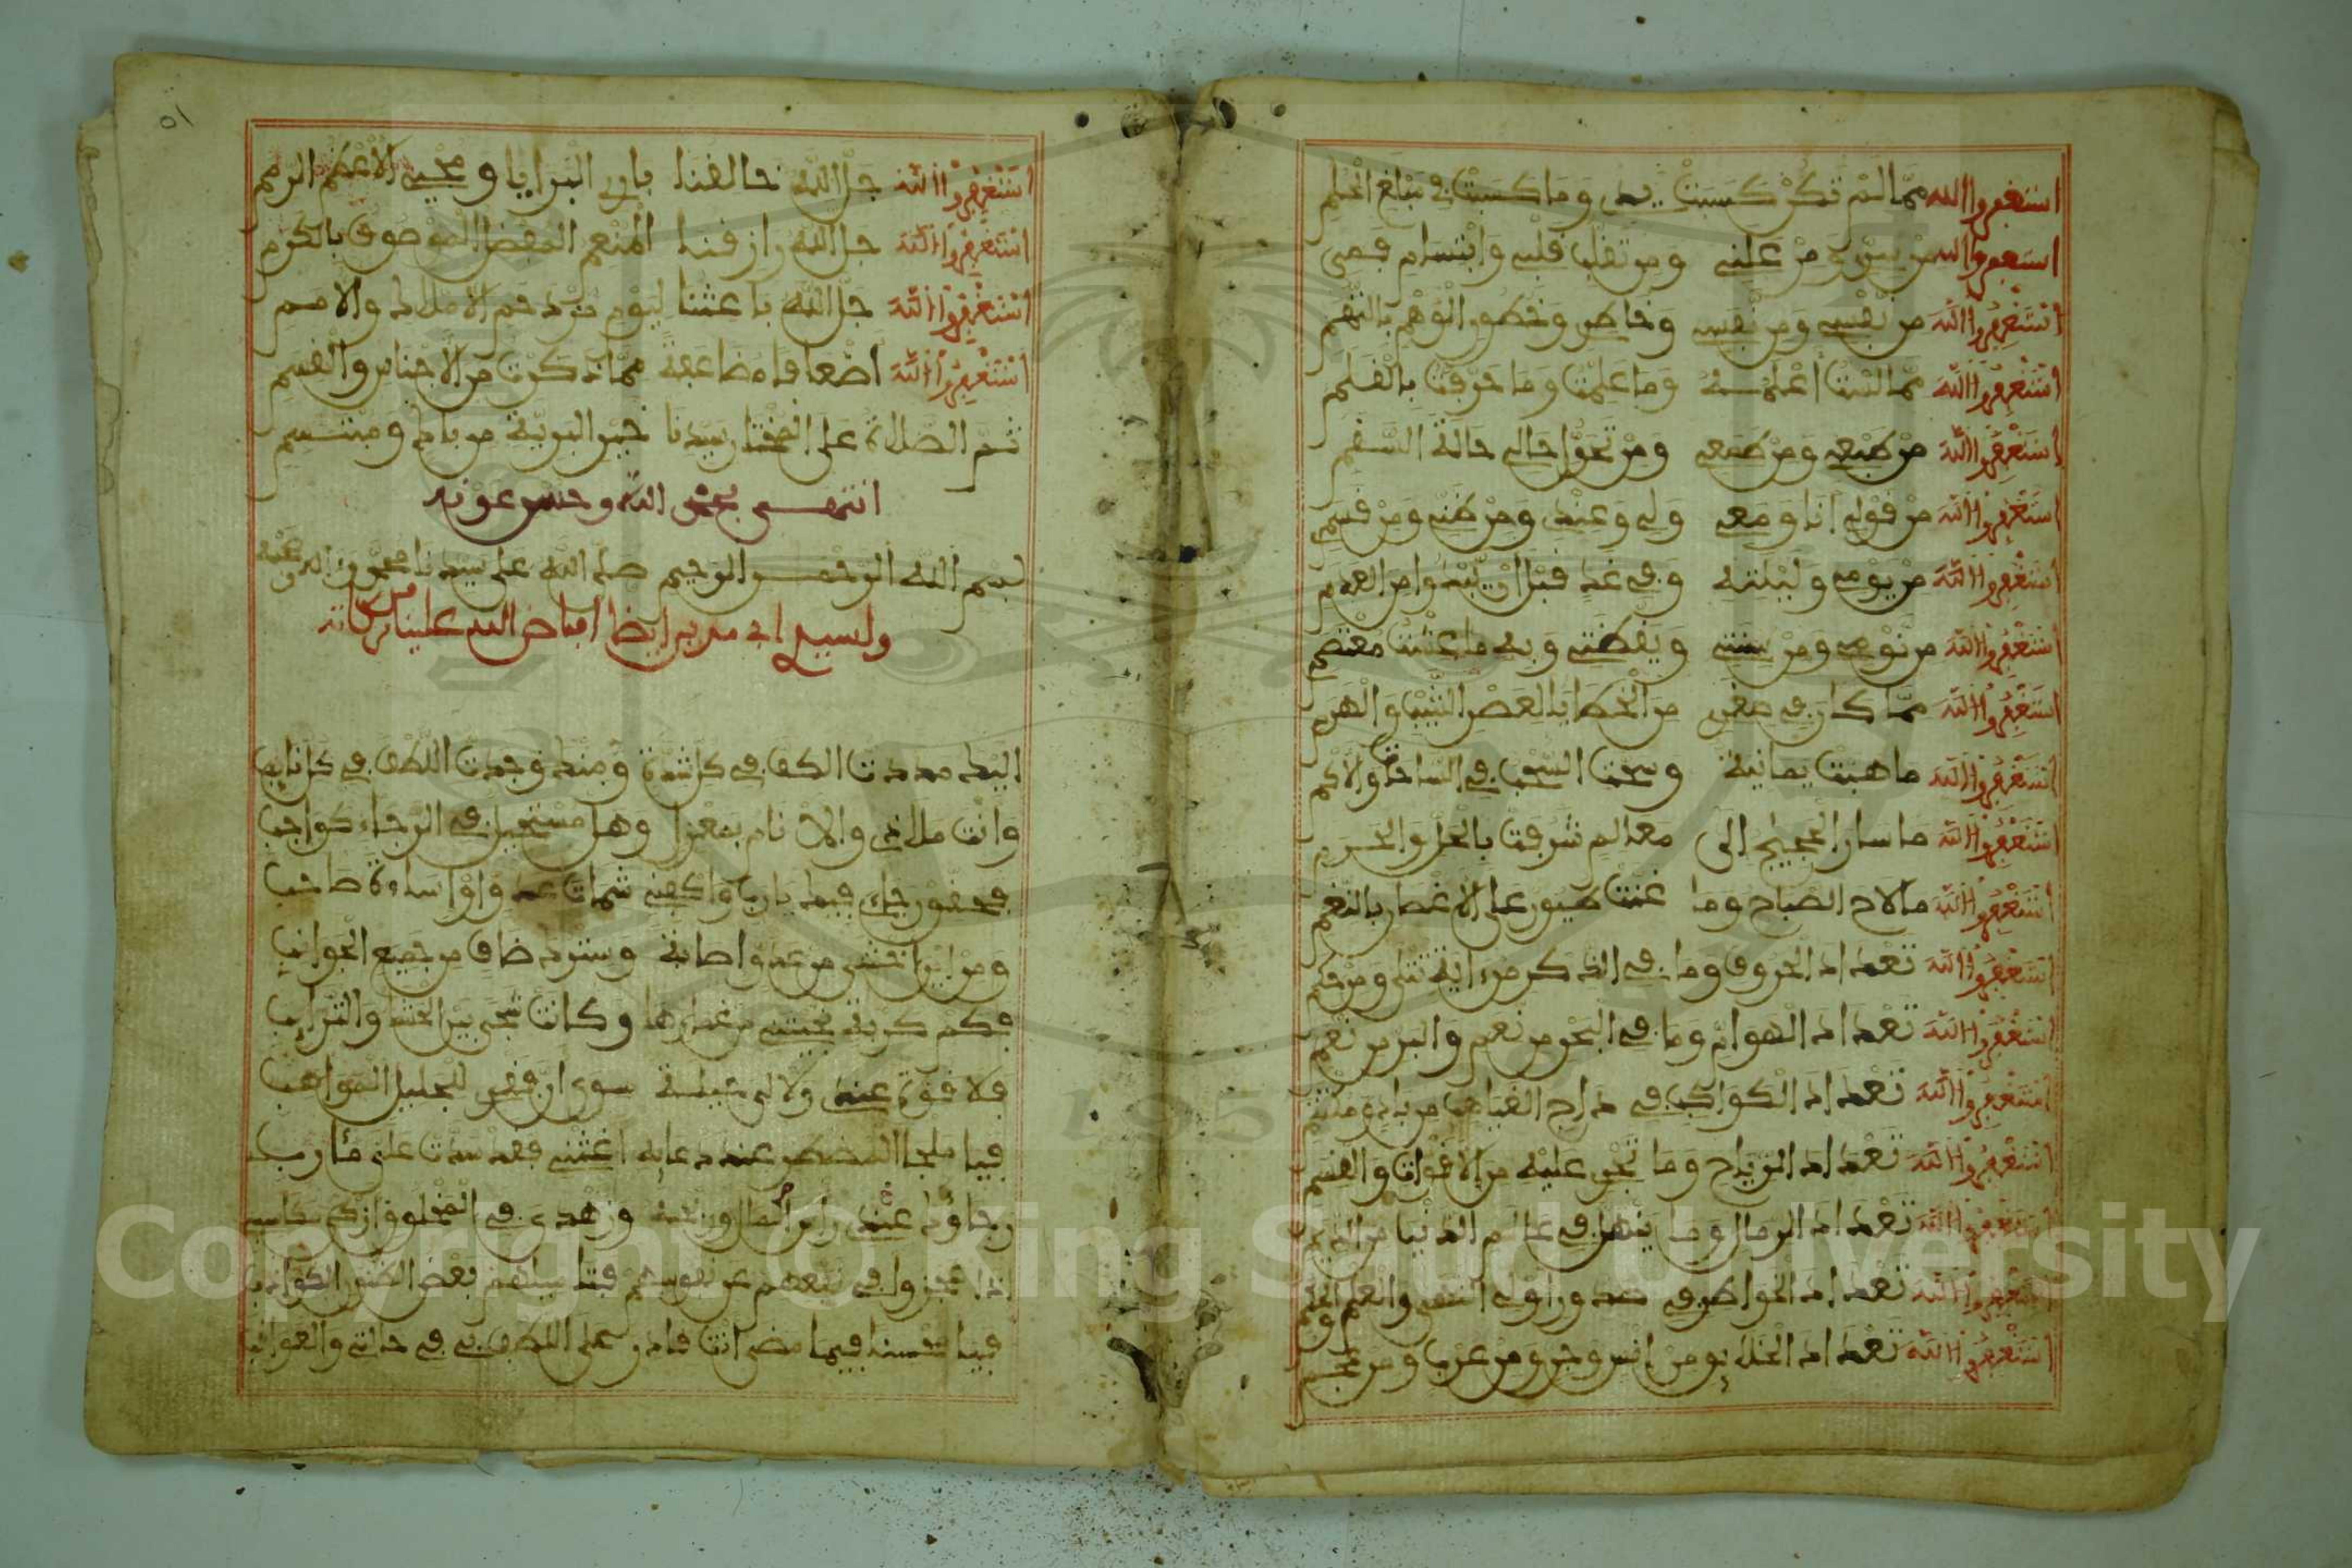 استغفر الله مما لم تكن كسبت يدي وما كسبت في مبلغ الحلم
استغفر الله من سري ومن علني ومن تقلب قلبي وابتسام فمي
استغفر الله من نفسي ومن نفسي وخاطري وخطور الوهم بالتهم
استغفر الله مما لست أعلمه وما علمت وما حرفت بالقلم
استغفر الله من طبعي ومن طمعي ومن تحول حالي حالة السقم
استغفر الله من قولي أنا ومعي ولي وعندي ومن ظني ومن قسمي
استغفر الله من يومي وليلته وفي غد قبل أن يبدوا من العدم
استغفر الله من نومي ومن سنتي ويقظتي وبه ما عشت معتصم
استغفر الله مما كان في صغري من الخطايا لعصر الشيب والهرم
استغفر الله ما هبت يمانية وسحت السحب في الساحات والاكم
استغفر الله ما سار الحجيج إلى معالم شرفت بالحل والحرم
استغفر الله ما لاح الصباح وما غنت طيور على الأغصان بالنغم
استغفر الله تعداد الحروف وما في الذكر من اية تتلى ومن حكم
استغفر الله تعداد الهوام وما في البحر من نعم والبر من نعم
استغفر الله تعداد الكواكب في داج الغياهب من باد ومكتتم
استغفر الله تعداد الرياح وما تجري عليه من الاقوات والقسم
استغفر الله تعداد الرمال وما ينهل في عالم الدنيا من الديم
استغفر الله تعداد الخواطر في صدور أولي التقى والعلم والحكم
استغفر الله تعداد الخلايق من إنس وجن ومن عرب ومن عجم
١٥
استغفر الله جل الله خالقنا باري البرايا ومحيي الأعظم الرمم
استغفر الله جل الله رازقنا المنعم المفضل الموصوف بالكرم
استغفر الله جل الله باعثنا ليوم مزدحم الأملاك والامم
استغفر الله أضعافا مضاعفة مما ذكرت من الأجناس والقسم
ثم الصلاة على المختار سيدنا خير البرية من باك ومبتسم
انتهى بحمد الله وحسن عونه
بسم الله الرحمن الرحيم صلى الله على سيدنا محمد واله وصحبه
ولسيدي أبي مدين أيضا أفاض الله علينا من بركاته
اليك مددت الكف في كل شدة ومنك وجدت اللطف في كل نايب
وانت ملاذي والانام بمعزل وهل مستحيل في الرجاء كواجب
فحقق رجاءي فيك يا رب واكفني شمات عدو أو إساءة صاحب
ومن اين أخشى من عدو إصابة وسترك ضاف من جميع الجوانب
فكم كربة نجيتني من غمارها وكانت شجى بين الحشا والترايب
فلا قوة عندي ولا لي حيلة سوى أن فقري للجليل المواهب
فيا ملجأ المضطر عند دعايه أغثني فقد سدت علي مذاهبي
رجاؤك عندي رأس المال وربحه وزهدي في المخلوق ازكى مكاسبي
إذا عجزوا في نفعهم عن نفوسهم
فيا محسنا فيما مضى أنت قادر على اللطف بي في حالتي والعواقب
Copyright © King Saud University